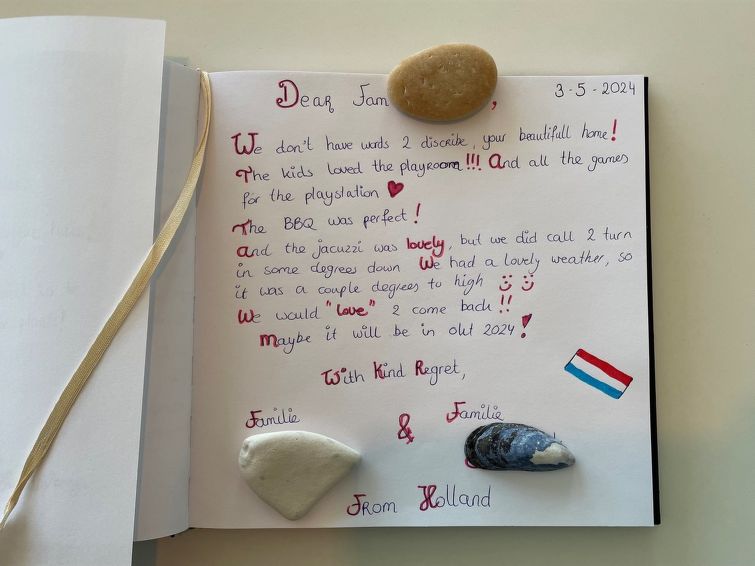 3-5-2024
Dear Fam ,
We don't have words 2 discribe, your beautifull home!
The kids loved the playroom!!! And all the games
for the playstation ♥
The BBQ was perfect!
And the jacuzzi was lovely, but we did call 2 turn
in some degrees down We had a lovely weather, so
it was a couple degrees to high
We would "love" 2 come back!!
Maybe it will be in okt 2024!
With Kind Regret,
Familie & Familie
From Holland